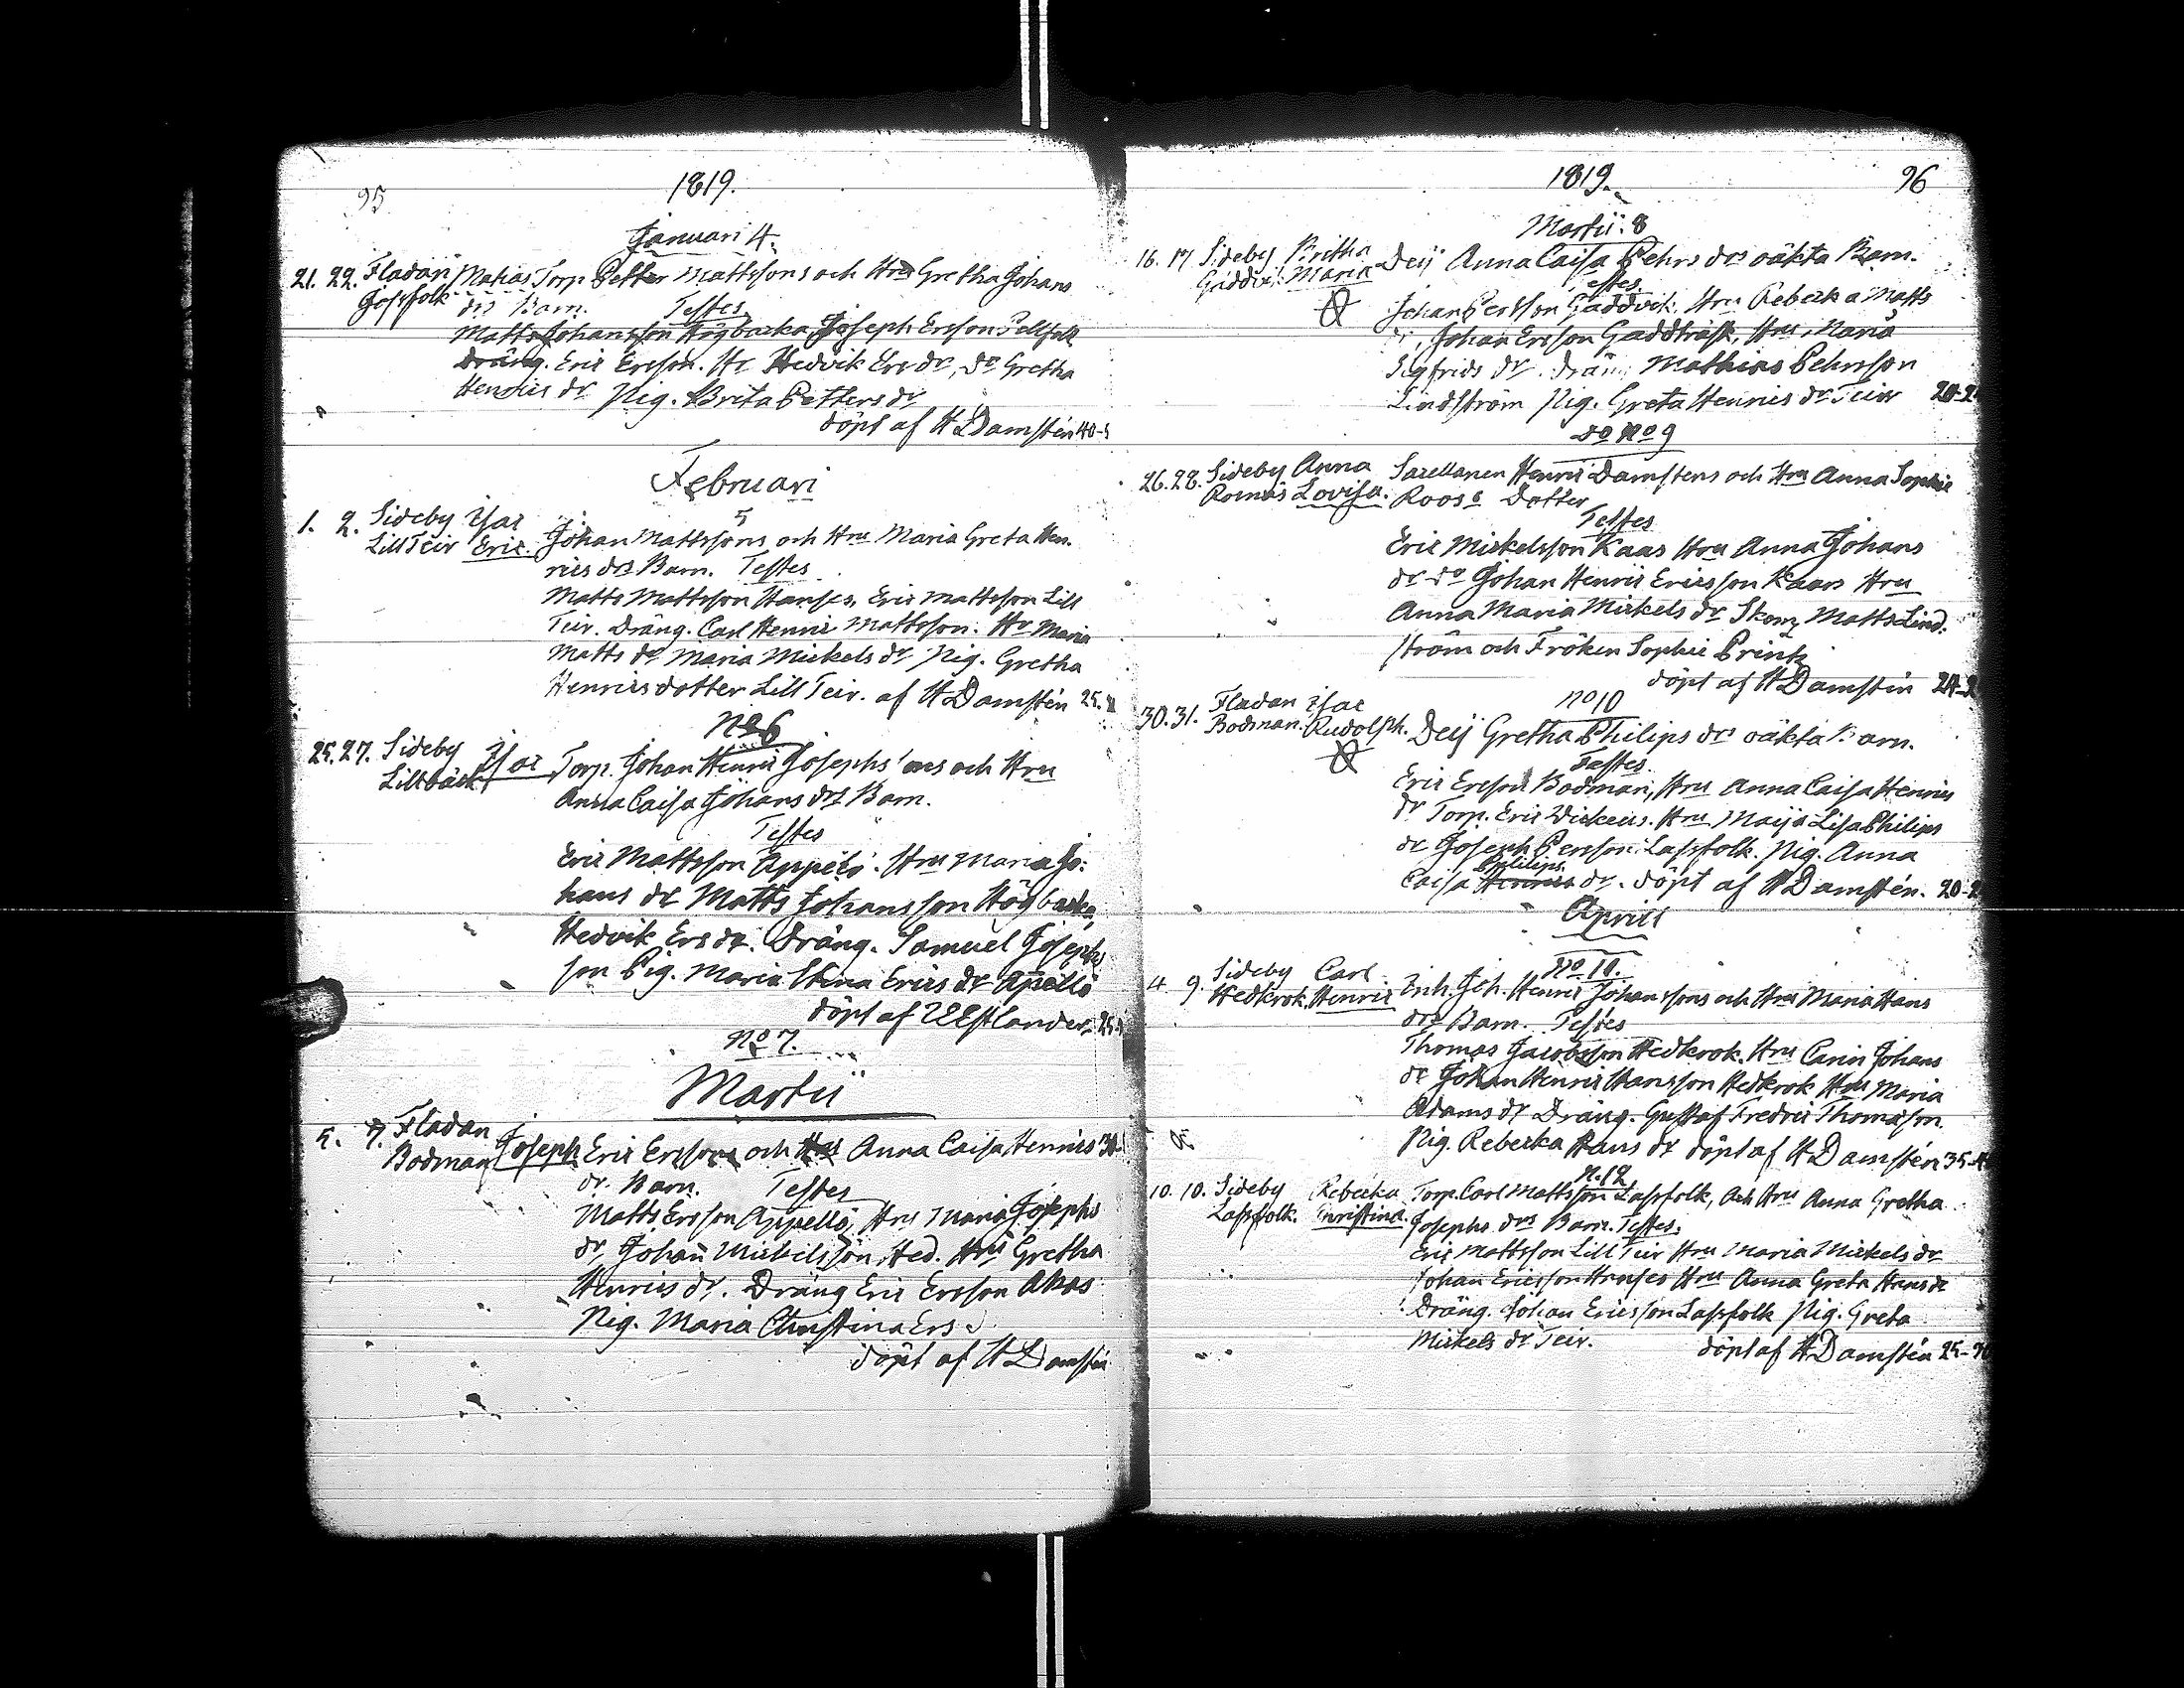 95
1819.
Januari 4.
21. 22. Fladan Matias Torp. Petter Mattssons och Hru Gretha Johans
drs Barn. Testes
Matts Johansson Högbacka, Joseph Ersson
Dräng. Eric Ersson. Hr Hedvik Ers dr, do Gretha
Henrics dr Pig. Brita Petters dr
döpt af HDamstén 40-
Februari
5
1. 2. Sideby Isac
LillTeir Eric. Johan Mattssons och Hru Maria Greta Hen-
rics drs Barn. Testes
Matts Mattsson Hanses, Eric Mattsson Lill
Teir. Dräng. Carl Henric Mattsson. Hr Maria
Matts dr Maria Mickels dr Pig. Gretha
Henricsdotter Lill Teir. af HDamstén 25.
No 6
25. 27. Sideby Isac Torp. Johan Henric Josephssons och Hru
Lillbäck
Anna Caisa Johans drs Barn.
Testes
Eric Mattsson Appelö. Hru Maria Jo:
hans dr Matts Johansson Högbacka,
Hedvik Ers dr. Dräng. Samuel Josephs
son Pig. Maria Stina Erics dr Apellö
döpt af Estlander 25-
No 7.
Martii
5. 7. Fladan
Bodman Joseph Eric Erssons och Hrs Anna Caisa Henrics 30
dr. Barn. Testes
Matts Ersson Appellö, Hru Maria Josephs
dr, Johan Mickelsson, Hed. Hru Gretha
Henrics dr. Dräng Eric Ersson
Pig. Maria Christina Ers
döpt af HDamstén
1819.
96
Martii: 8
16. 17 Sideby Britha
Gaddvik: Maria Deij Anna Caisa Pehrs drs oäkta Barn.
Testes
Johan Persson Gaddvik, Hru Rebecka Matts
Johan Ersson Gaddträsk, Hru, Maria
Sigfrids dr. Drän: Mathias Pehrsson
Lindström Pig. Greta Henrics dr Teir 20-2
do No 9
26. 28. Sideby Anna Sacellanen Henric Damstens och Hru Anna Sophie
Lovisa. Roos's Dotter
Testes
Eric Mickelsson Kaas Hru Anna Johans
dr do Johan Henric Ericsson Kaas Hru
Anna Maria Mickels dr Matts Lind:
ström och Fröken Sophie Printz
döpt af HDamstén 24-2
No 10
30. 31. Fladan Isac
Bodman. Rudolph. Deij Gretha Philips drs oäkta Barn.
Testes
Eric Ersson Bodman, Hru Anna Caisa Henrics
dr Torp. Eric Hru Maija Lisa Philips
dr Joseph Persson Lassfolk. Pig. Anna
Philips
Caisa Henrics dr. döpt af HDamstén. 20-2
Aprill
No 11.
4 9. Sideby Carl
Hedkrok. Henric Inh. Joh. Henric Johanssons och Hru Maria Hans
drs Barn. Testes
Thomas Jacobsson Hedkrok. Hru Carin Johans
dr Johan Henric Hansson Hedkrok Hru Maria
Adams dr Dräng. Gustaf Fredric Thomasson.
Pig. Rebecka Hans dr döpt af HDamstén 35-4
N. 12
10. 10. Sideby Rebecka Torp. Carl Mattsson Lassfolk, och Hru Anna Gretha
Lassfolk. Christina. Josephs drs Barn. Testes.
Eric Mattsson Lill Teir Hru Maria Mickels dr
Johan Ericsson Hanses Hru Anna Greta Hans dr
Dräng. Johan Ericsson Lassfolk Pig. Greta
Mickels dr Teir. döpt af HDamstén 25-30